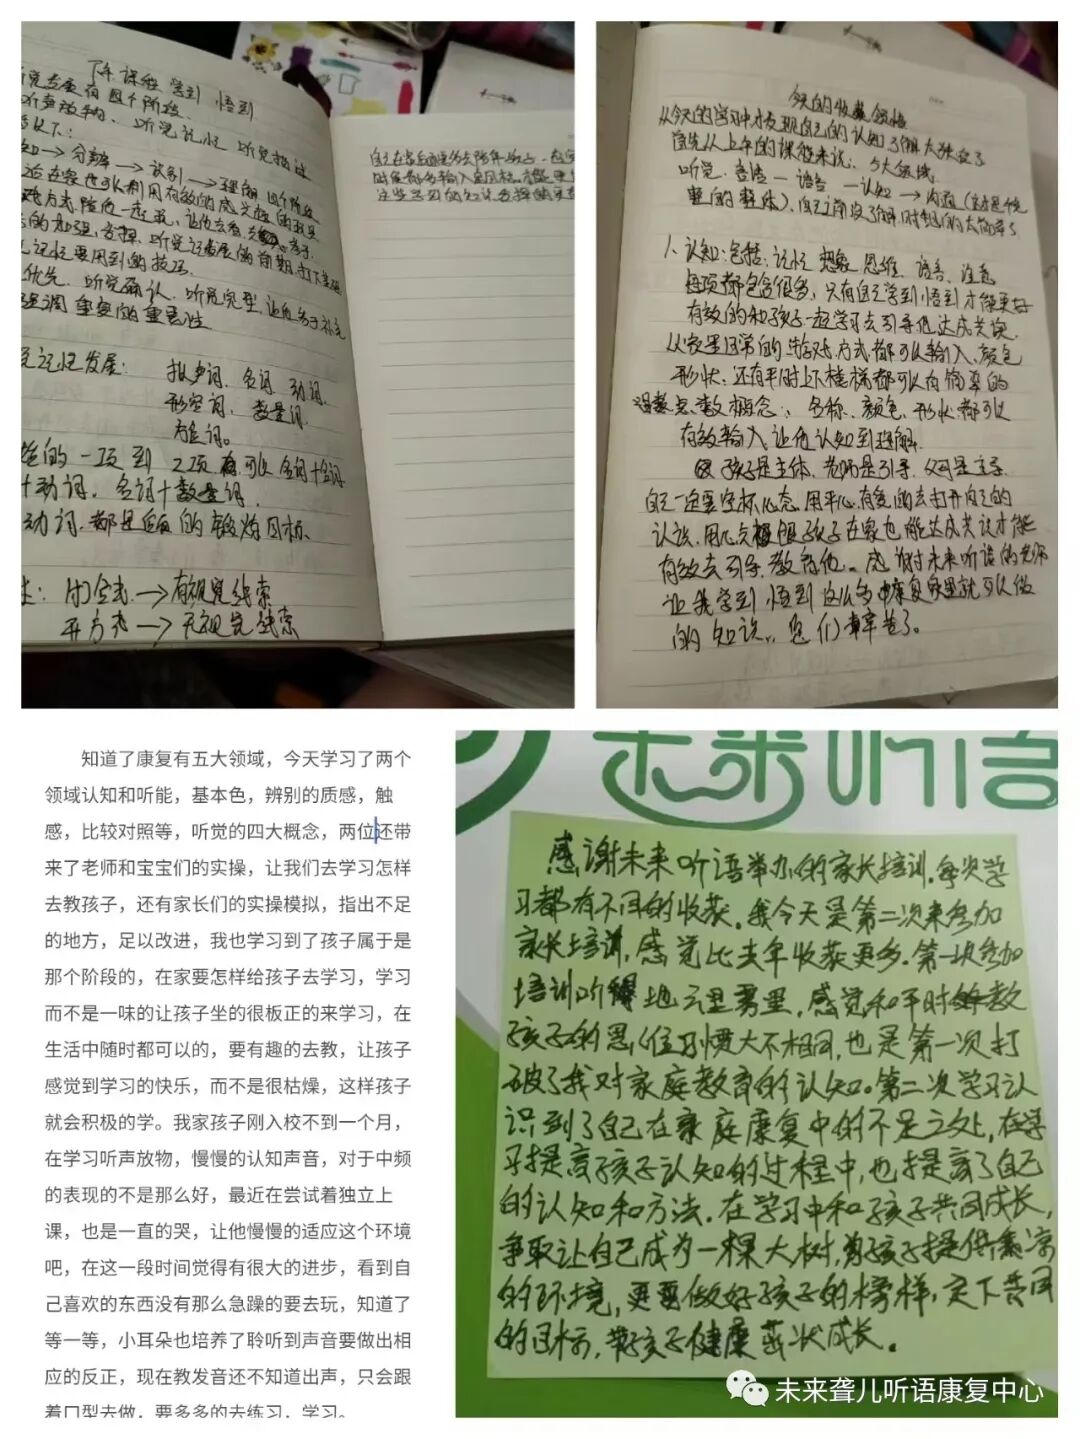 下午课程学到 悟到
觉发展有四个阶段.
听声放物、听觉记忆 听觉描述
→分辨→识别→理解 四个阶段
记忆要用到的技巧.
优先. 听觉确认. 听觉完型. 让
强调 重复的重要性
记忆发展: 拟声词. 名词. 动词.
形容词. 数量词.
方位词。
的一项到2项 可以 名词+名词
+动词. 名词+数量词.
动词. 都是 的锻炼目标.
闭合式→有视觉线索
开方式→无视觉线索
今天的收获领悟
从今天的学习中才发现自己的认知了解太缺乏了
首先从上午的课程来说: 5大领域.
听觉. 言语—语言—认知→沟通
整的整体). 自己之前没了解. 时想的太简单了
1、认知: 包括: 记忆 想象 思维. 语言. 注意
每项都包含很多, 只有自己学到 悟到才能更好
有效的和孩子一起学习去引导他达成共识.
从家里日常的 方式都可以输入. 颜色
形状. 还有平时上下楼梯都可以有简单的
点数概念. 名称、颜色. 形状都可以
有效输入让他认知到理解.
孩子是主体. 老师是引导. 父母是主导.
自己一定要定好心态. 用平心有爱的去打开自己的
认识. 用 孩子在家也能达成共识才能
有效去引导. 教育他。感谢 未来听语的老师
让我学到 悟到这么多 康复家里就可以做
的知识.. 您们 辛苦了。
知道了康复有五大领域，今天学习了两个
领域认知和听能，基本色，辨别的质感，触
感，比较对照等，听觉的四大概念，两位还带
来了老师和宝宝们的实操，让我们去学习怎样
去教孩子，还有家长们的实操模拟，指出不足
的地方，足以改进，我也学习到了孩子属于是
那个阶段的，在家要怎样给孩子去学习，学习
而不是一味的让孩子坐的很板正的来学习，在
生活中随时都可以的，要有趣的去教，让孩子
感觉到学习的快乐，而不是很枯燥，这样孩子
就会积极的学。我家孩子刚入校不到一个月，
在学习听声放物，慢慢的认知声音，对于中频
的表现的不是那么好，最近在尝试着独立上
课，也是一直的哭，让他慢慢的适应这个环境
吧，在这一段时间觉得有很大的进步，看到自
己喜欢的东西没有那么急躁的要去玩，知道了
等一等，小耳朵也培养了聆听到声音要做出相
应的反正，现在教发音还不知道出声，只会跟
着口型去做，要多多的去练习，学习。
未来听语
感谢未来听语举办的家长培训. 每次学
习都有不同的收获. 我今天是第二次来参加
家长培训, 感觉比去年收获更多. 第一次参加
培训听得 地云里雾里, 感觉和平时 教
孩子的思 习惯大不相同, 也是第一次打
破了我对家庭教育的认知. 第二次学习认
识到了自己在家庭康复中的不足之处, 在学
习提高孩子认知的过程中, 也提高了自己
的认知和方法. 在学习中和孩子共同成长,
争取让自己成为一棵大树, 为孩子提供 凉
的环境, 更要做好孩子的榜样, 定下共同
的目标, 带孩子健康茁壮成长.
未来聋儿听语康复中心